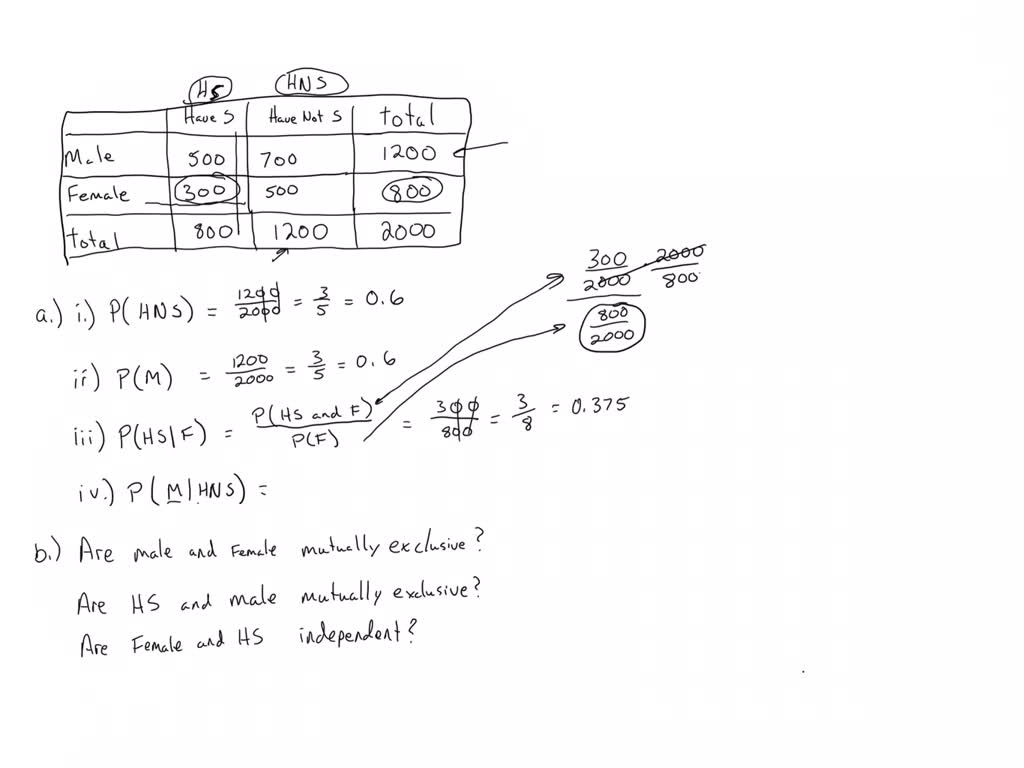 HS HNS
Have S Have Not S total
Male 500 700 1200
Female 300 500 800
total 800 1200 2000
300/2000 2000/800
800/2000
a.) i.) P(HNS) = 1200/2000 = 3/5 = 0.6
ii) P(M) = 1200/2000 = 3/5 = 0.6
iii) P(HS|F) = P(HS and F)/P(F) = 300/800 = 3/8 = 0.375
iv.) P(M|HNS) =
b.) Are male and Female mutually exclusive?
Are HS and male mutually exclusive?
Are Female and HS independent?